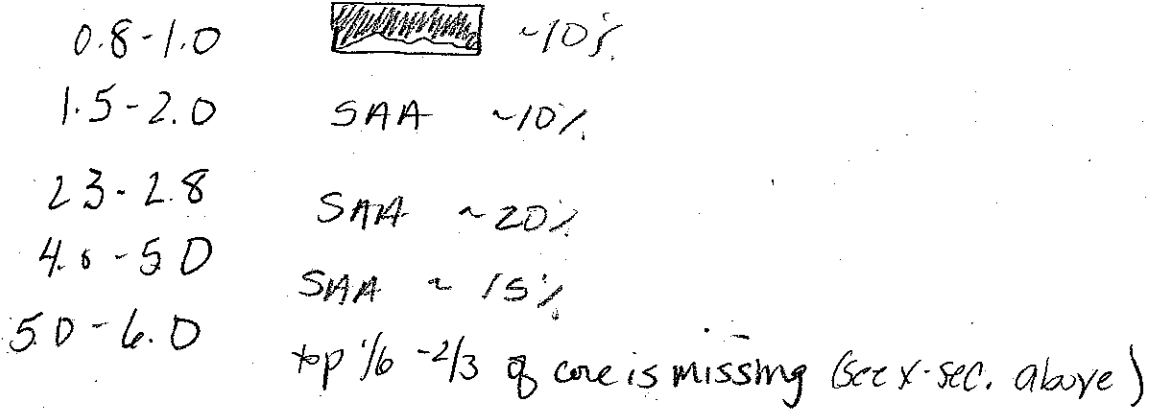 0.8-1.0 ~10%
1.5-2.0 SAA ~10%
2.3-2.8 SAA ~20%
4.0-5.0 SAA ~15%
5.0-6.0 top 1/6-2/3 of core is missing (see x-sec. above)